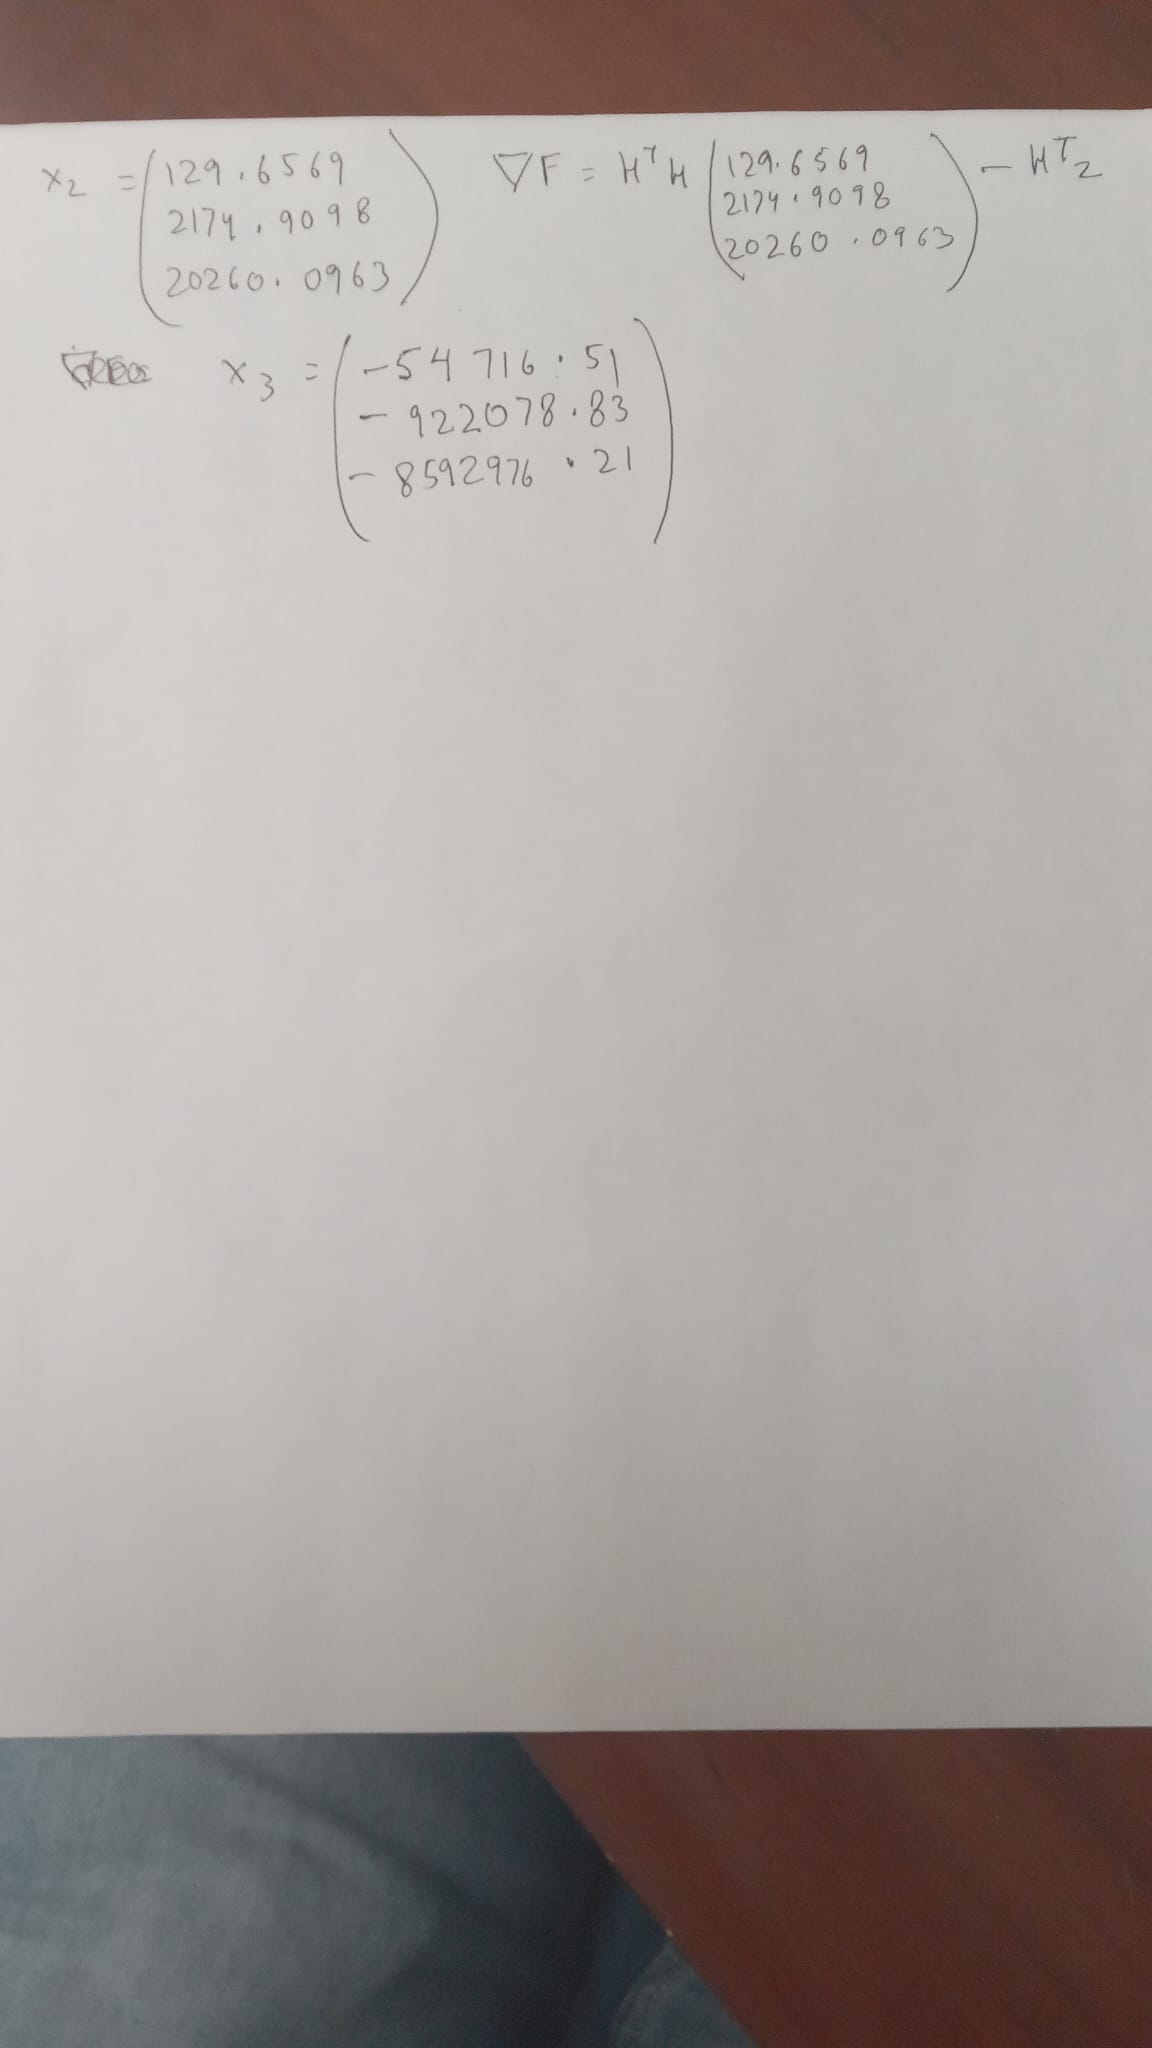 x₂ = (129.6569 2174.9098 20260.0963) ∇F = Hᵀ H (129.6569 2174.9098 20260.0963) - Hᵀz
x₃ = (-54716.51 -922078.83 -8592976.21)